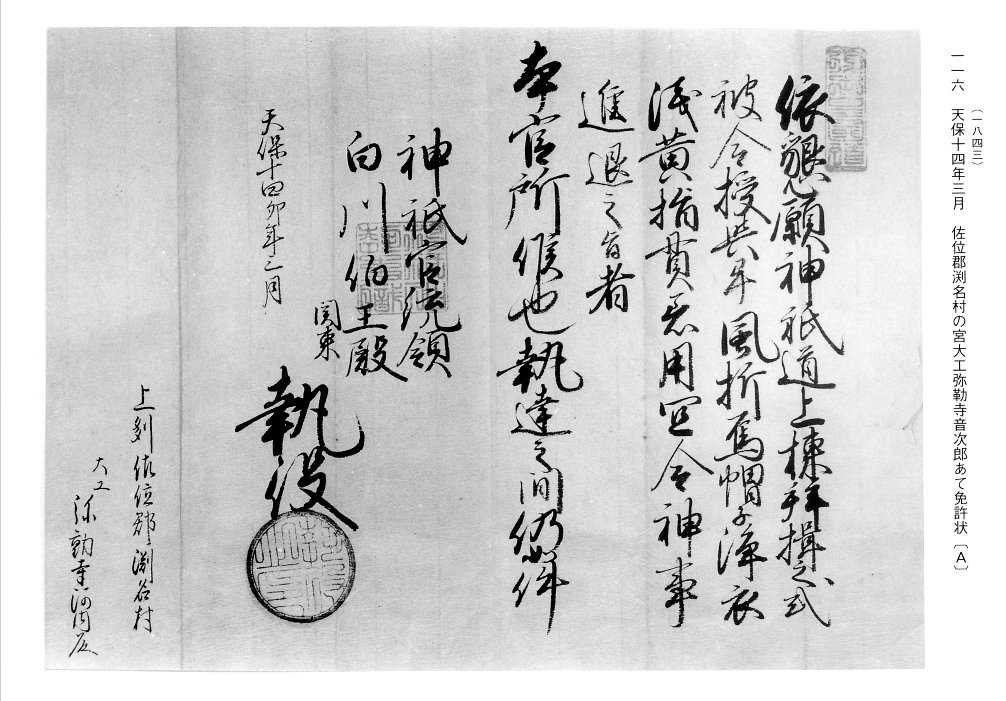 (一八四三)
一一六 天保十四年三月 佐位郡渕名村の宮大工弥勒寺音次郎あて免許状〔A〕
依懇願神祇道上棟拝揖之式
被令授与畢風折烏帽子浄衣
浅黄指貫着用宜令神事
進退之旨者
本官所候也執達之間仍如件
神祇官統領
白川伯王殿
関東
執役
天保十四卯年三月
上刕佐位郡渕名村
大工
弥勒寺河内